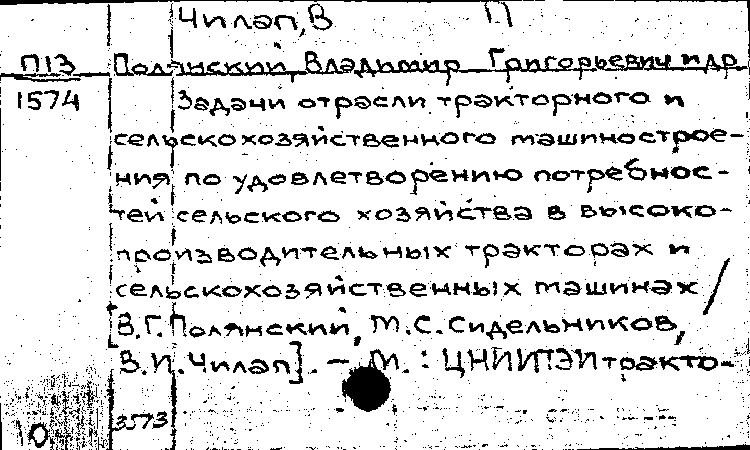 Чилап, В П
П13 Полянский, Владимир Григорьевич и др
1574 Задачи отрасли тракторного и
сельскохозяйственного машинострое-
ния по удовлетворению потребнос-
тей сельского хозяйства в высоко-
производительных тракторах и
сельскохозяйственных машинах /
[В.Г. Полянский, М.С. Сидельников,
В.И. Чилап]. - М. : ЦНИИТЭИтракто-
3573
0